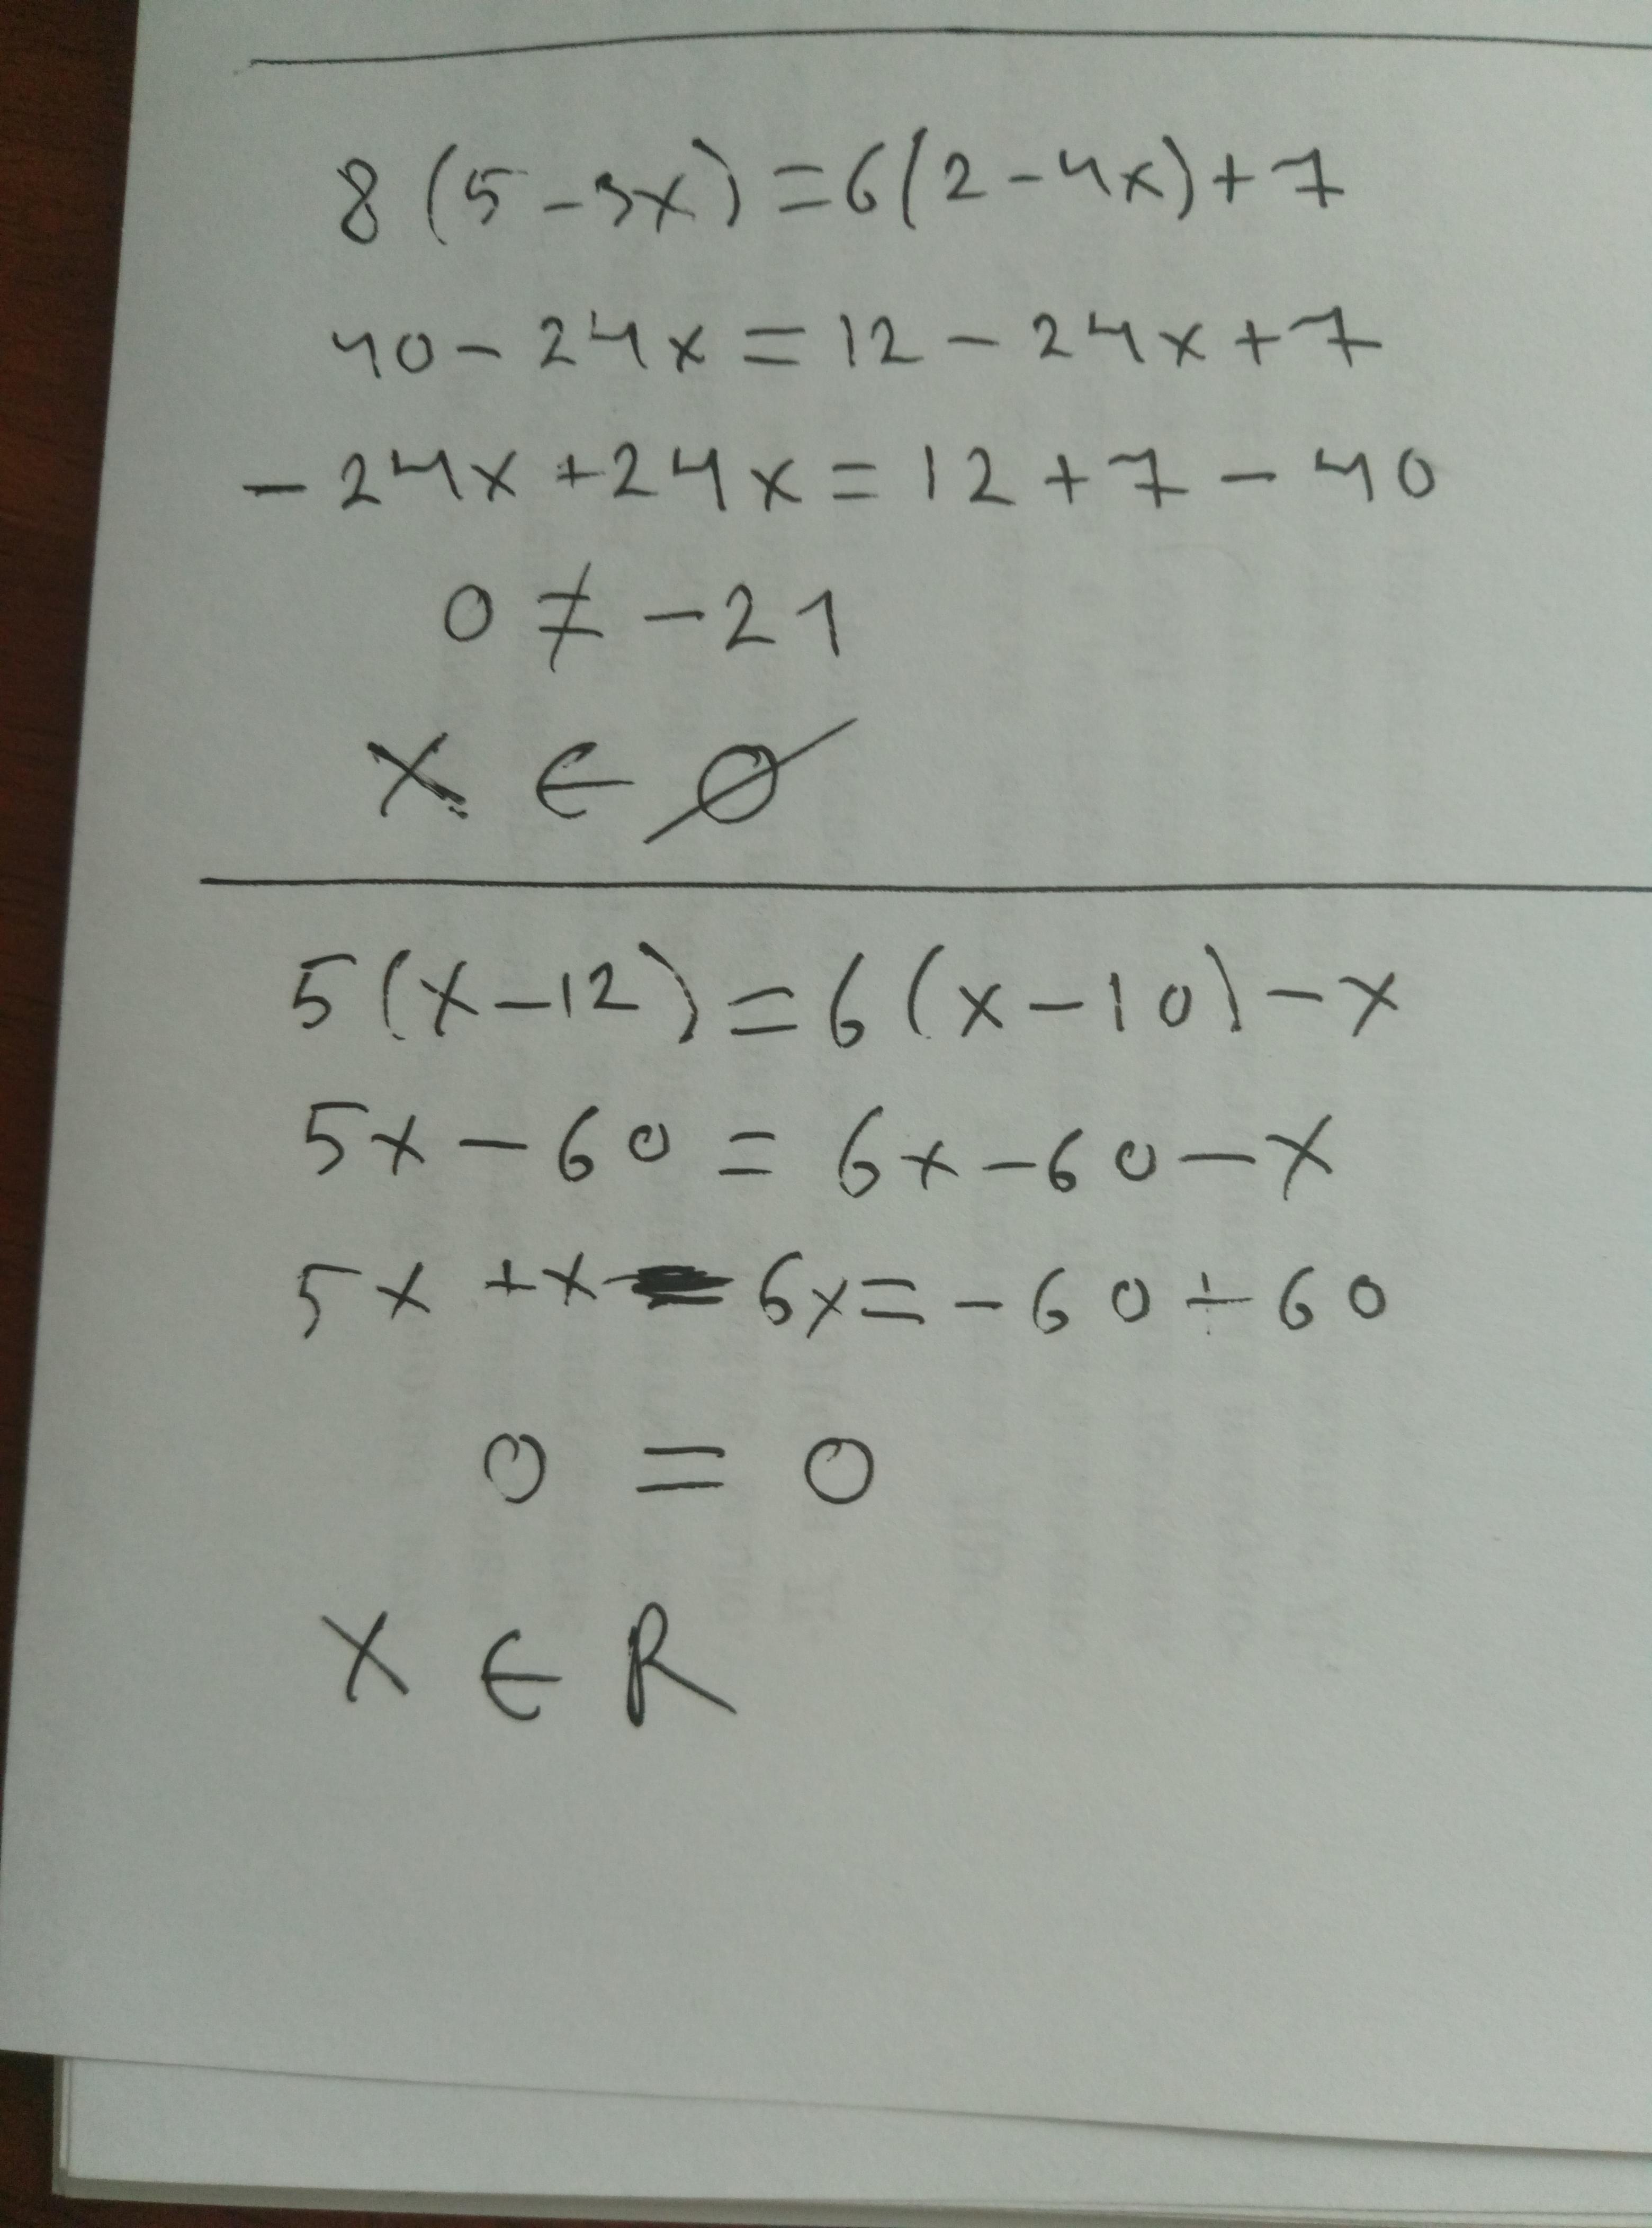 8(5-3x)=6(2-4x)+7
40-24x=12-24x+7
-24x+24x=12+7-40
0≠-21
x∈∅
5(x-12)=6(x-10)-x
5x-60=6x-60-x
5x+x-6x=-60+60
0=0
x∈R